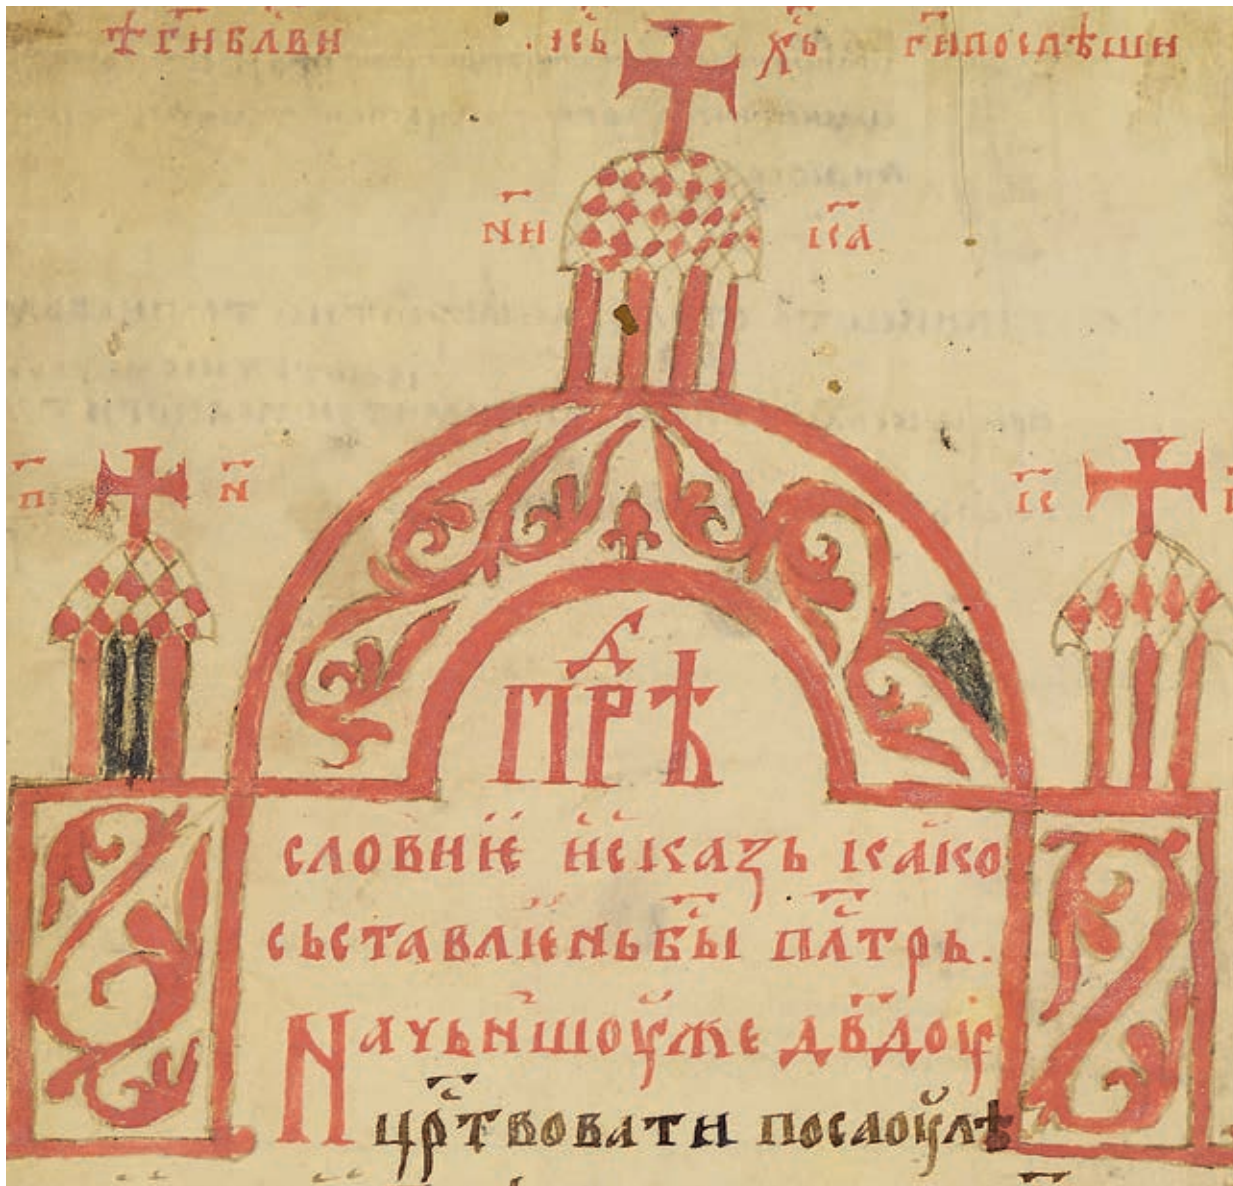 ѣ г҃и бл҃ви ·іс҃ь х҃ь г҃и поспѣши
н҃и к҃а
п҃ н҃
іс҃
прѣⷣ
словиѥ ис каꙁь како
съставлѥнь бы҃ п҃лтрь.
Начьншоу же дв҃доу
цр҃твовати по саоулѣ